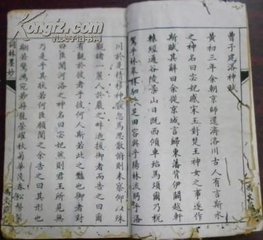 曹子建洛神賦
黃初三年余朝京師還濟洛川古人有言斯水
之神名曰宓妃感宋玉對楚王神女之事遂作
斯賦其辭曰余從京域言歸東藩背伊闕越轘
轅經通谷陵景山日既西傾車殆馬煩爾乃稅
駕乎秣駟乎芝田容與乎陽林流眄乎洛
川於是精移神駭忽焉思散俯則未察仰以殊
觀覩一麗人于巖之畔迺援御者而告之曰爾
有覿於彼者乎彼何人斯若此之豔也御者對
曰臣聞河洛之神名曰宓妃則君王所見無
迺是乎其狀若何臣願聞之余告之曰其形也
翩若驚鴻婉若游龍榮曜秋菊華茂春松髣